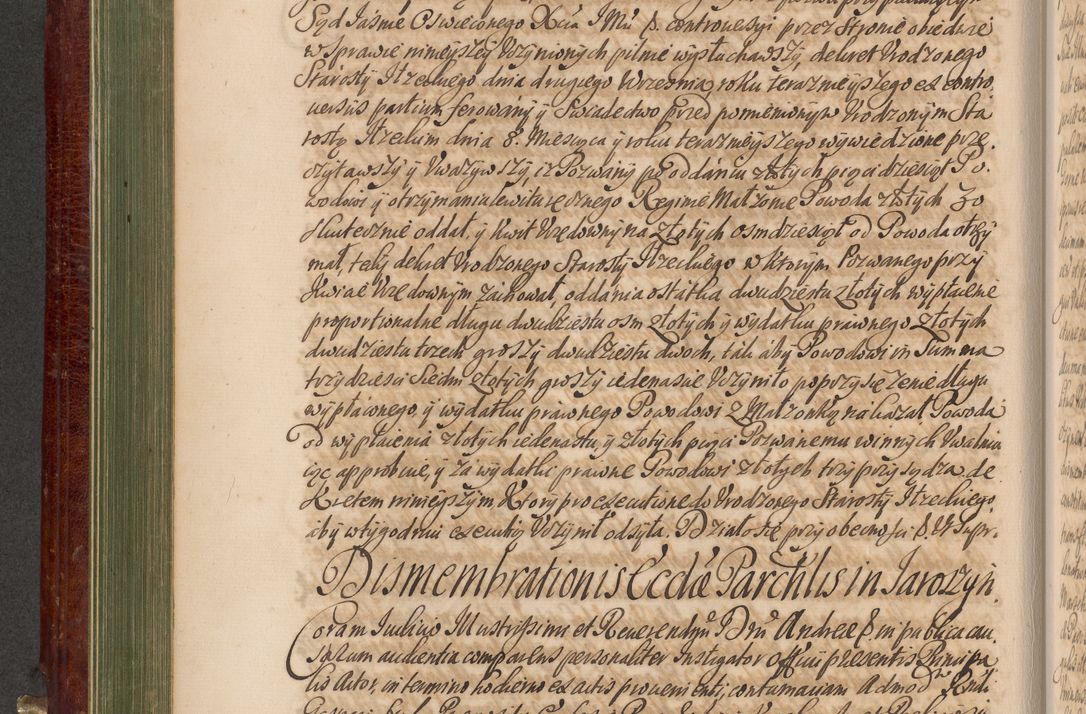 Sąd Jasnie Oswieconego Xcia JMci P. controuersyi przez Strone obiedwie
w Sprawie ninieyszey Uczynionych pilnie wysłuchawszy, dekret Urodzonego
Starosty Itzeckiego dnia drugiego Wrzesnia roku terazneyszego ex contro
uersiis partium ferowany y Swiadectwo przed pomienionym Urodzonym Sta
rostą Itzeckim dnia 8. Miesiąca y roku terazneyszego wywiedzione prze,
czytawszy y Uważywszy, iż Pozwany po oddaniu złotych pięcidziesiąt Po,
wodowi y otrzymaniu kwitu ręcznego Reginie Małżonie Powoda złotych 30
skutecznie oddał, y kwit Urzędowny na złotych osmdziesiąt od Powoda otrzy
mał, tedy dekret Urodzonego Starosty Itzeckiego w ktorym Pozwanego przy
Kwicie Urzędownym zachował, oddania ostatka dwudziestu złotych wypłacenie
proportionalne długu dwudziestu osm złotych y wydatku prawnego złotych
dwudziestu trzech groszy dwudziestu dwoch, tak aby Powodowi in Summa
trzydziesci Siedm złotych groszy iedenascie Uczyniło poprzysiężenie długu
wypłaconego, y wydatku prawnego Powodowi z Małżonką nakazał, Powoda
od wypłacenia złotych iedenastu y złotych pięci Pozwanemu winnych Uwalnia
iąc approbuie, y za wydatki prawne Powodowi złotych trzy przysądza de
kretem ninieyszym Ktory pro executione do Urodzonego Starosty Itzeckiego,
aby w tygodniu exekucyą Uczynił odsyła. Działo się przy obecności P. W Supr.
Dismembrationis Eccłæ Parchlis in Jaroszyn.
Coram Iudicio Illustrissimi et Reuerendmi Dni Andreæ P. in publica cau,
sarum audientia comparens personaliter Instigator officii præsentis Principa
lis Actor, in termino hodierno ex actis proueniente, contumaciam Admodum Rndi